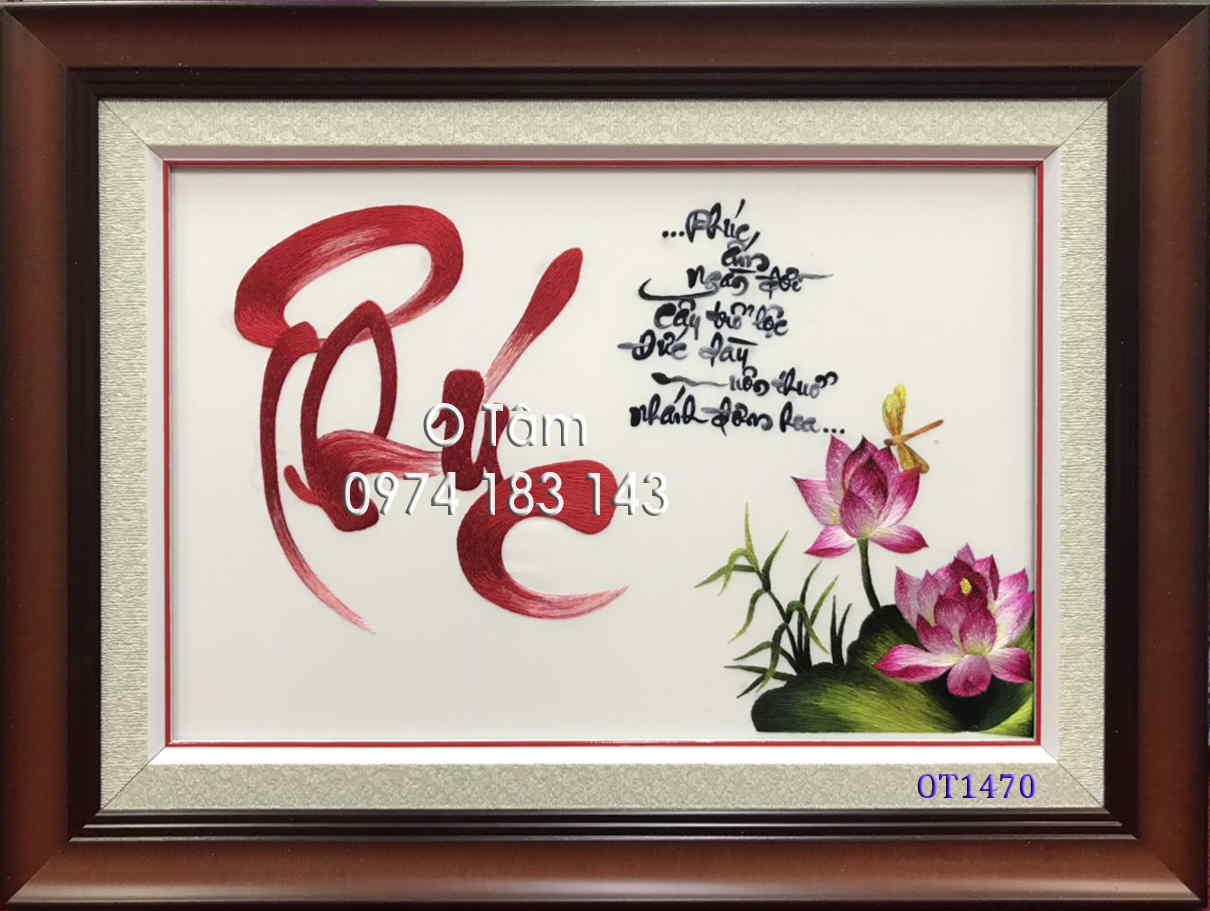 Phúc
...Phúc,
ấm
ngàn đời
cây trổ lộc
Đức dày
muôn thuở
nhánh đơm hoa...
O Tâm
0974 183 143
OT1470